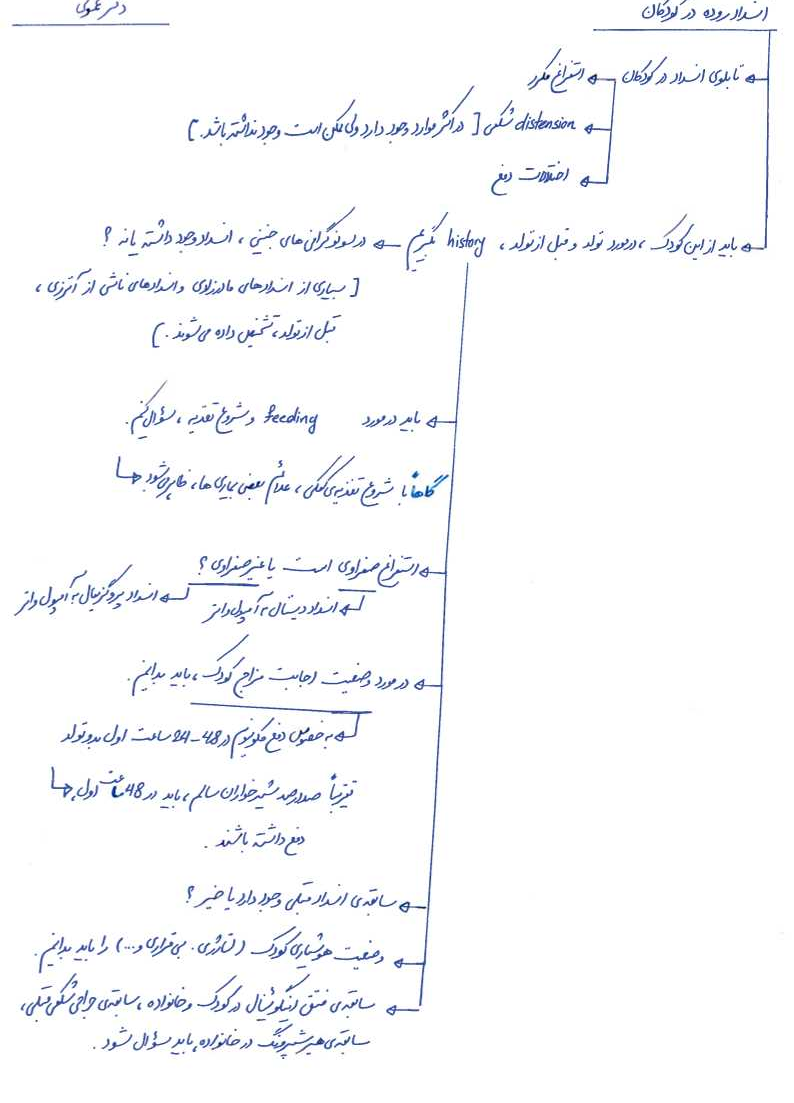 انسداد روده در کودکان
دکتر عموی
تابلوی انسداد در کودکان
استفراغ مکرر
distension شکمی [ در اکثر موارد وجود دارد ولی ممکن است وجود نداشته باشد . ]
اختلالات دفع
باید از این کودک ، در مورد تولد و قبل از تولد ، history بگیریم
در سونوگرافی های جنینی ، انسداد وجود داشته یا نه ؟
[ بسیاری از انسدادهای مادرزادی و انسدادهای ناشی از آترزی ،
قبل از تولد ، تشخیص داده می شوند . ]
باید در مورد feeding و شروع تغذیه ، سؤال کنیم .
گاهاً با شروع تغذیه ی کمکی ، علائم بعضی بیماری ها ، ظاهر می شود
استفراغ صفراوی است یا غیر صفراوی ؟
انسداد دیستال به آمپول واتر
انسداد پروگزیمال به آمپول واتر
در مورد وضعیت اجابت مزاج کودک ، باید بدانیم .
به خصوص دفع مکونیوم در 48-24 ساعت اول بدو تولد
تقریباً صد در صد شیرخواران سالم ، باید در 48 ساعت اول ،
دفع داشته باشند .
سابقه ی انسداد قبلی وجود دارد یا خیر ؟
وضعیت هوشیاری کودک ( لتارژی . بی قراری و ... ) را باید بدانیم .
سابقه ی فتق اینگوئینال در کودک و خانواده ، سابقه ی جراحی شکمی قبلی ،
سابقه ی هیرشپرونگ در خانواده ، باید سؤال شود .